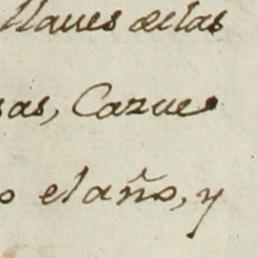 llaves de las
sas, Cazue
o el año, y